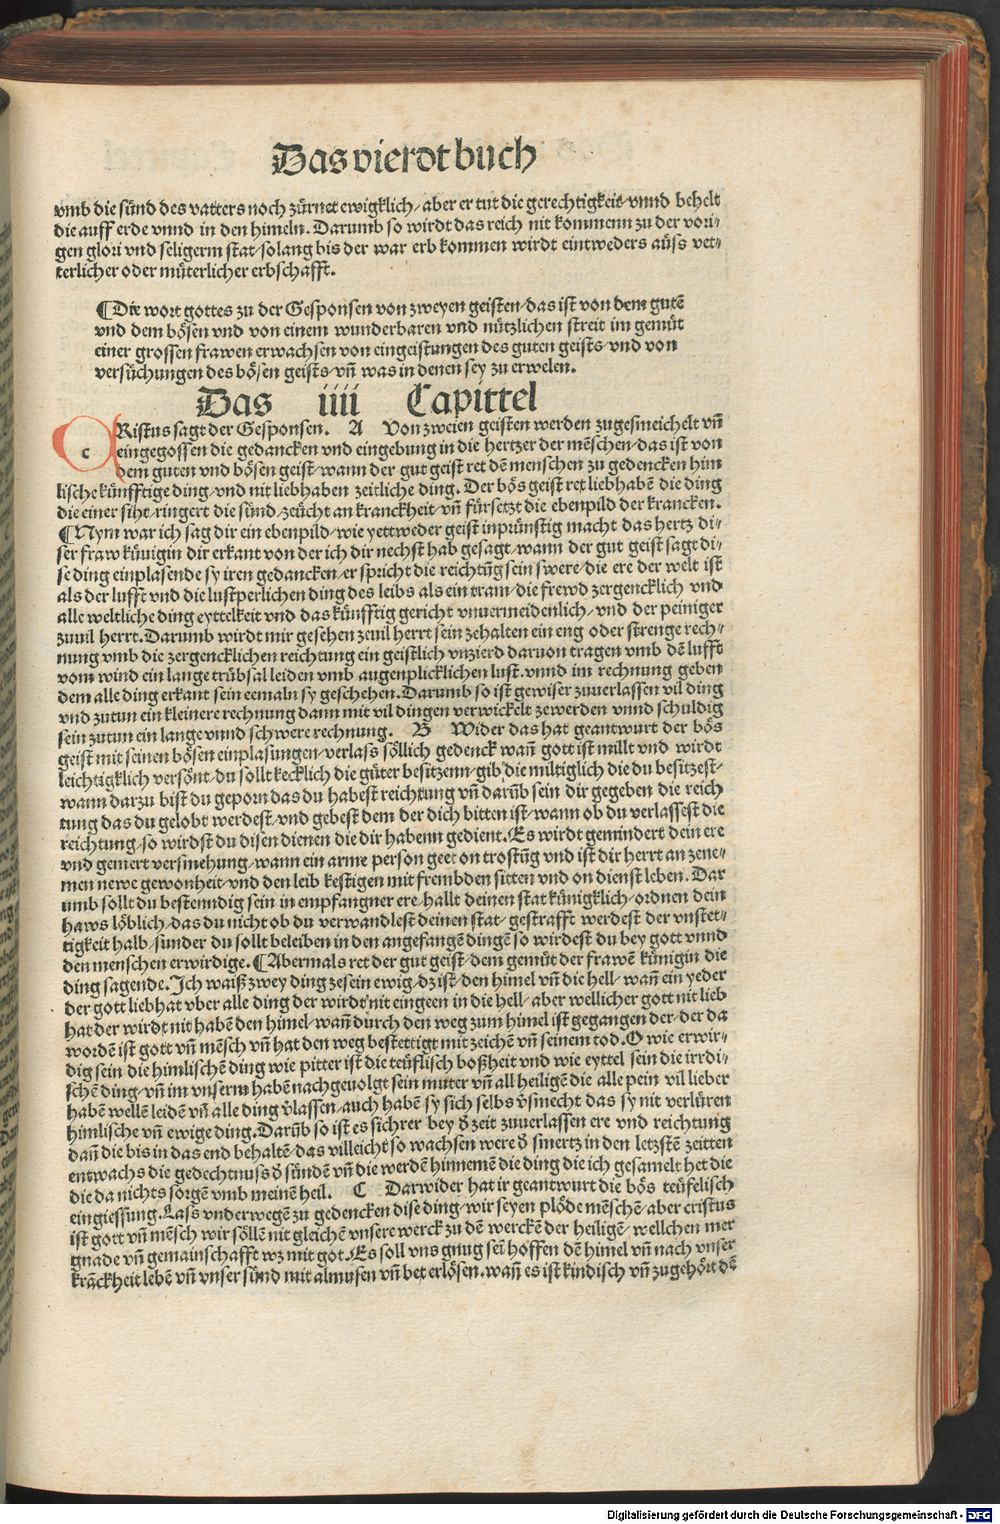 Das vierdt buch
vmb die sünd des vatters noch zürnet ewigklich/ aber er tut die gerechtigkeit/ vnnd behelt
die auff erde vnnd in den himeln. Darumb so wirdt das reich nit kommenn zu der vori⸗
gen glori vnd seligerm stat/ solang bis der war erb kommen wirdt eintweders aüss vet⸗
terlicher oder müterlicher erbschafft.
¶Die wort gottes zu der Gesponsen von zweyen geisten/ das ist von dem gutē
vnd dem bösen vnd von einem wunderbaren vnd nützlichen streit im gemüt
einer grossen frawen erwachsen von eingeistungen des guten geists/ vnd von
versüchungen des bösen geists/ vn̄ was in denen sey zu erwelen.
Das iiii Capittel
cRistus sagt der Gesponsen. A Von zweien geisten werden zugesmeichelt vn̄
eingegossen die gedancken vnd eingebung in die hertzer der mēschen/ das ist von
dem guten vnd bösen geist/ wann der gut geist ret dē menschen zu gedencken him
lische künfftige ding/ vnd nit liebhaben zeitliche ding. Der bös geist ret liebhabē die ding
die einer siht/ ringert die sünd/ zeücht an kranckheit/ vn̄ fürsetzt die ebenpild der krancken.
¶Nym war ich sag dir ein ebenpild/ wie yettweder geist inprünstig macht das hertz di⸗
ser fraw künigin dir erkant von der ich dir nechst hab gesagt/ wann der gut geist sagt di⸗
se ding einplasende sy iren gedancken/ er spricht die reichtūg sein swere/ die ere der welt ist
als der lufft vnd die lustperlichen ding des leibs als ein tram/ die frewd zergencklich vnd
alle weltliche ding eyttelkeit vnd das künfftig gericht vnuermeidenlich/ vnd der peiniger
zuuil herrt. Darumb wirdt mir gesehen zeuil herrt sein zehalten ein eng oder strenge rech⸗
nung vmb die zergencklichen reichtung ein geistlich vnzierd daruon tragen vmb dē lufft
vom wind ein lange trübsal leiden vmb augenplicklichen lust. vnnd im rechnung geben
dem alle ding erkant sein eemaln sy geschehen. Darumb so ist gewiser zuuerlassen vil ding
vnd zutun ein kleinere rechnung dann mit vil dingen verwickelt zewerden vnnd schuldig
sein zutun ein lange vnnd schwere rechnung. B Wider das hat geantwurt der bös
geist mit seinen bösen einplasungen/ verlass söllich gedenck wan̄ gott ist millt vnd wirdt
leichtigklich versönt/ du sollt kecklich die güter besitzenn/ gib die miltiglich die du besitzest/
wann darzu bist du geporn das du habest reichtung vn̄ darūb sein dir gegeben die reich
tung das du gelobt werdest/ vnd gebest dem der dich bitten ist/ wann ob du verlassest die
reichtung/ so wirdst du disen dienen die dir habenn gedient. Es wirdt gemindert dein ere
vnd gemert versmehung/ wann ein arme person geet on trostūg vnd ist dir herrt an zene⸗
men newe gewonheit/ vnd den leib kestigen mit frembden sitten vnd on dienst leben. Dar
umb sollt du bestenndig sein in empfangner ere/ hallt deinen stat künigklich/ ordnen dein
haws löblich/ das du nicht ob du verwandlest deinen stat/ gestrafft werdest der vnstet⸗
tigkeit halb/ sunder du sollt beleiben in den angefangē dingē so wirdest du bey gott vnnd
den menschen erwirdige. ¶Abermals ret der gut geist/ dem gemüt der frawē künigin die
ding sagende. Ich waiß zwey ding zesein ewig/ dz ist/ den himel vn̄ die hell/ wan̄ ein yeder
der gott liebhat vber alle ding der wirdt nit eingeen in die hell/ aber wellicher gott nit lieb
hat der wirdt nit habē den himel/ wan̄ durch den weg zum himel ist gegangen der/ der da
wordē ist gott vn̄ mēsch vn̄ hat den weg bestettigt mit zeichē vn̄ seinem tod. O wie erwir⸗
dig sein die himlischē ding wie pitter ist die teüflisch boßheit vnd wie eyttel sein die irrdi⸗
schē ding/ vn̄ im vnserm habē nachgeuolgt sein muter vn̄ all heiligē die alle pein vil lieber
habē wellē leidē vn̄ alle ding v̄lassen/ auch habē sy sich selbs v̄smecht das sy nit verlüren
himlische vn̄ ewige ding. Darūb so ist es sichrer bey d̄ zeit zuuerlassen ere vnd reichtung
dan̄ die bis in das end behaltē/ das villeicht so wachsen were d̄ smertz in den letzstē zeitten
entwachs die gedechtnuss d̄ sündē vn̄ die werdē hinnemē die ding die ich gesamelt het die
die da nichts sorgē vmb meinē heil. C Darwider hat ir geantwurt die bös teüfelisch
eingiessung. Lass vnderwegē zu gedencken dise ding/ wir seyen plöde mēschē/ aber cristus
ist gott vn̄ mēsch wir söllē nit gleichē vnsere werck zu dē werckē der heiligē/ wellchen mer
gnade vn̄ gemainschafft wz mit got. Es soll vns gnug sei̅ hoffen dē himel vn̄ nach vnser
krāckheit lebē vn̄ vnser sünd mit almusen vn̄ bet erlösen. wan̄ es ist kindisch vn̄ zugehört dē
Digitalisierung gefördert durch die Deutsche Forschungsgemeinschaft - DFG